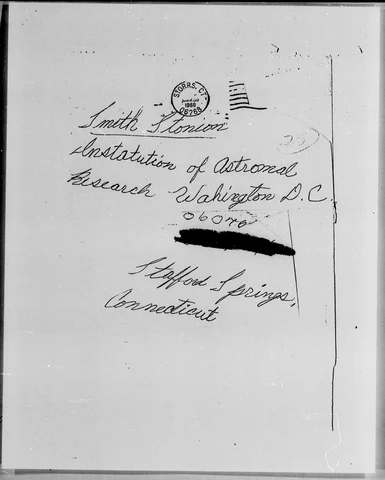 STORRS, CT.
1966
06268
Smith Stonion
Instatution of Astromal
Research Wahington D.C.
06076
Stafford Springs,
Connecticut